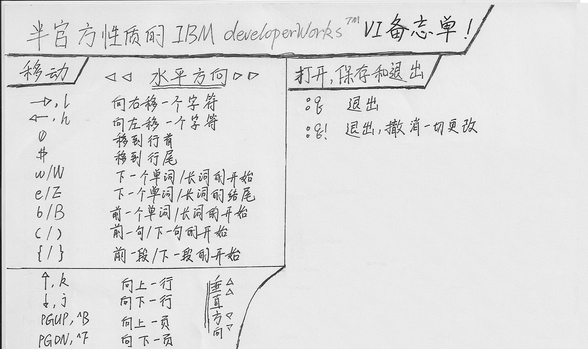 半官方性质的 IBM developerWorks™ VI备忘单!
移动
◁◁ 水平方向 ▷▷
→, l 向右移一个字符
←, h 向左移一个字符
0 移到行首
# 移到行尾
w/W 下一个单词/长词的开始
e/Z 下一个单词/长词的结尾
b/B 前一个单词/长词的开始
(/) 前一句/下一句的开始
{/} 前一段/下一段的开始
↑, k 向上一行
↓, j 向下一行
PGUP, ^B 向上一页
PGDN, ^F 向下一页
垂直方向
打开,保存和退出
:q 退出
:q! 退出,撤消一切更改